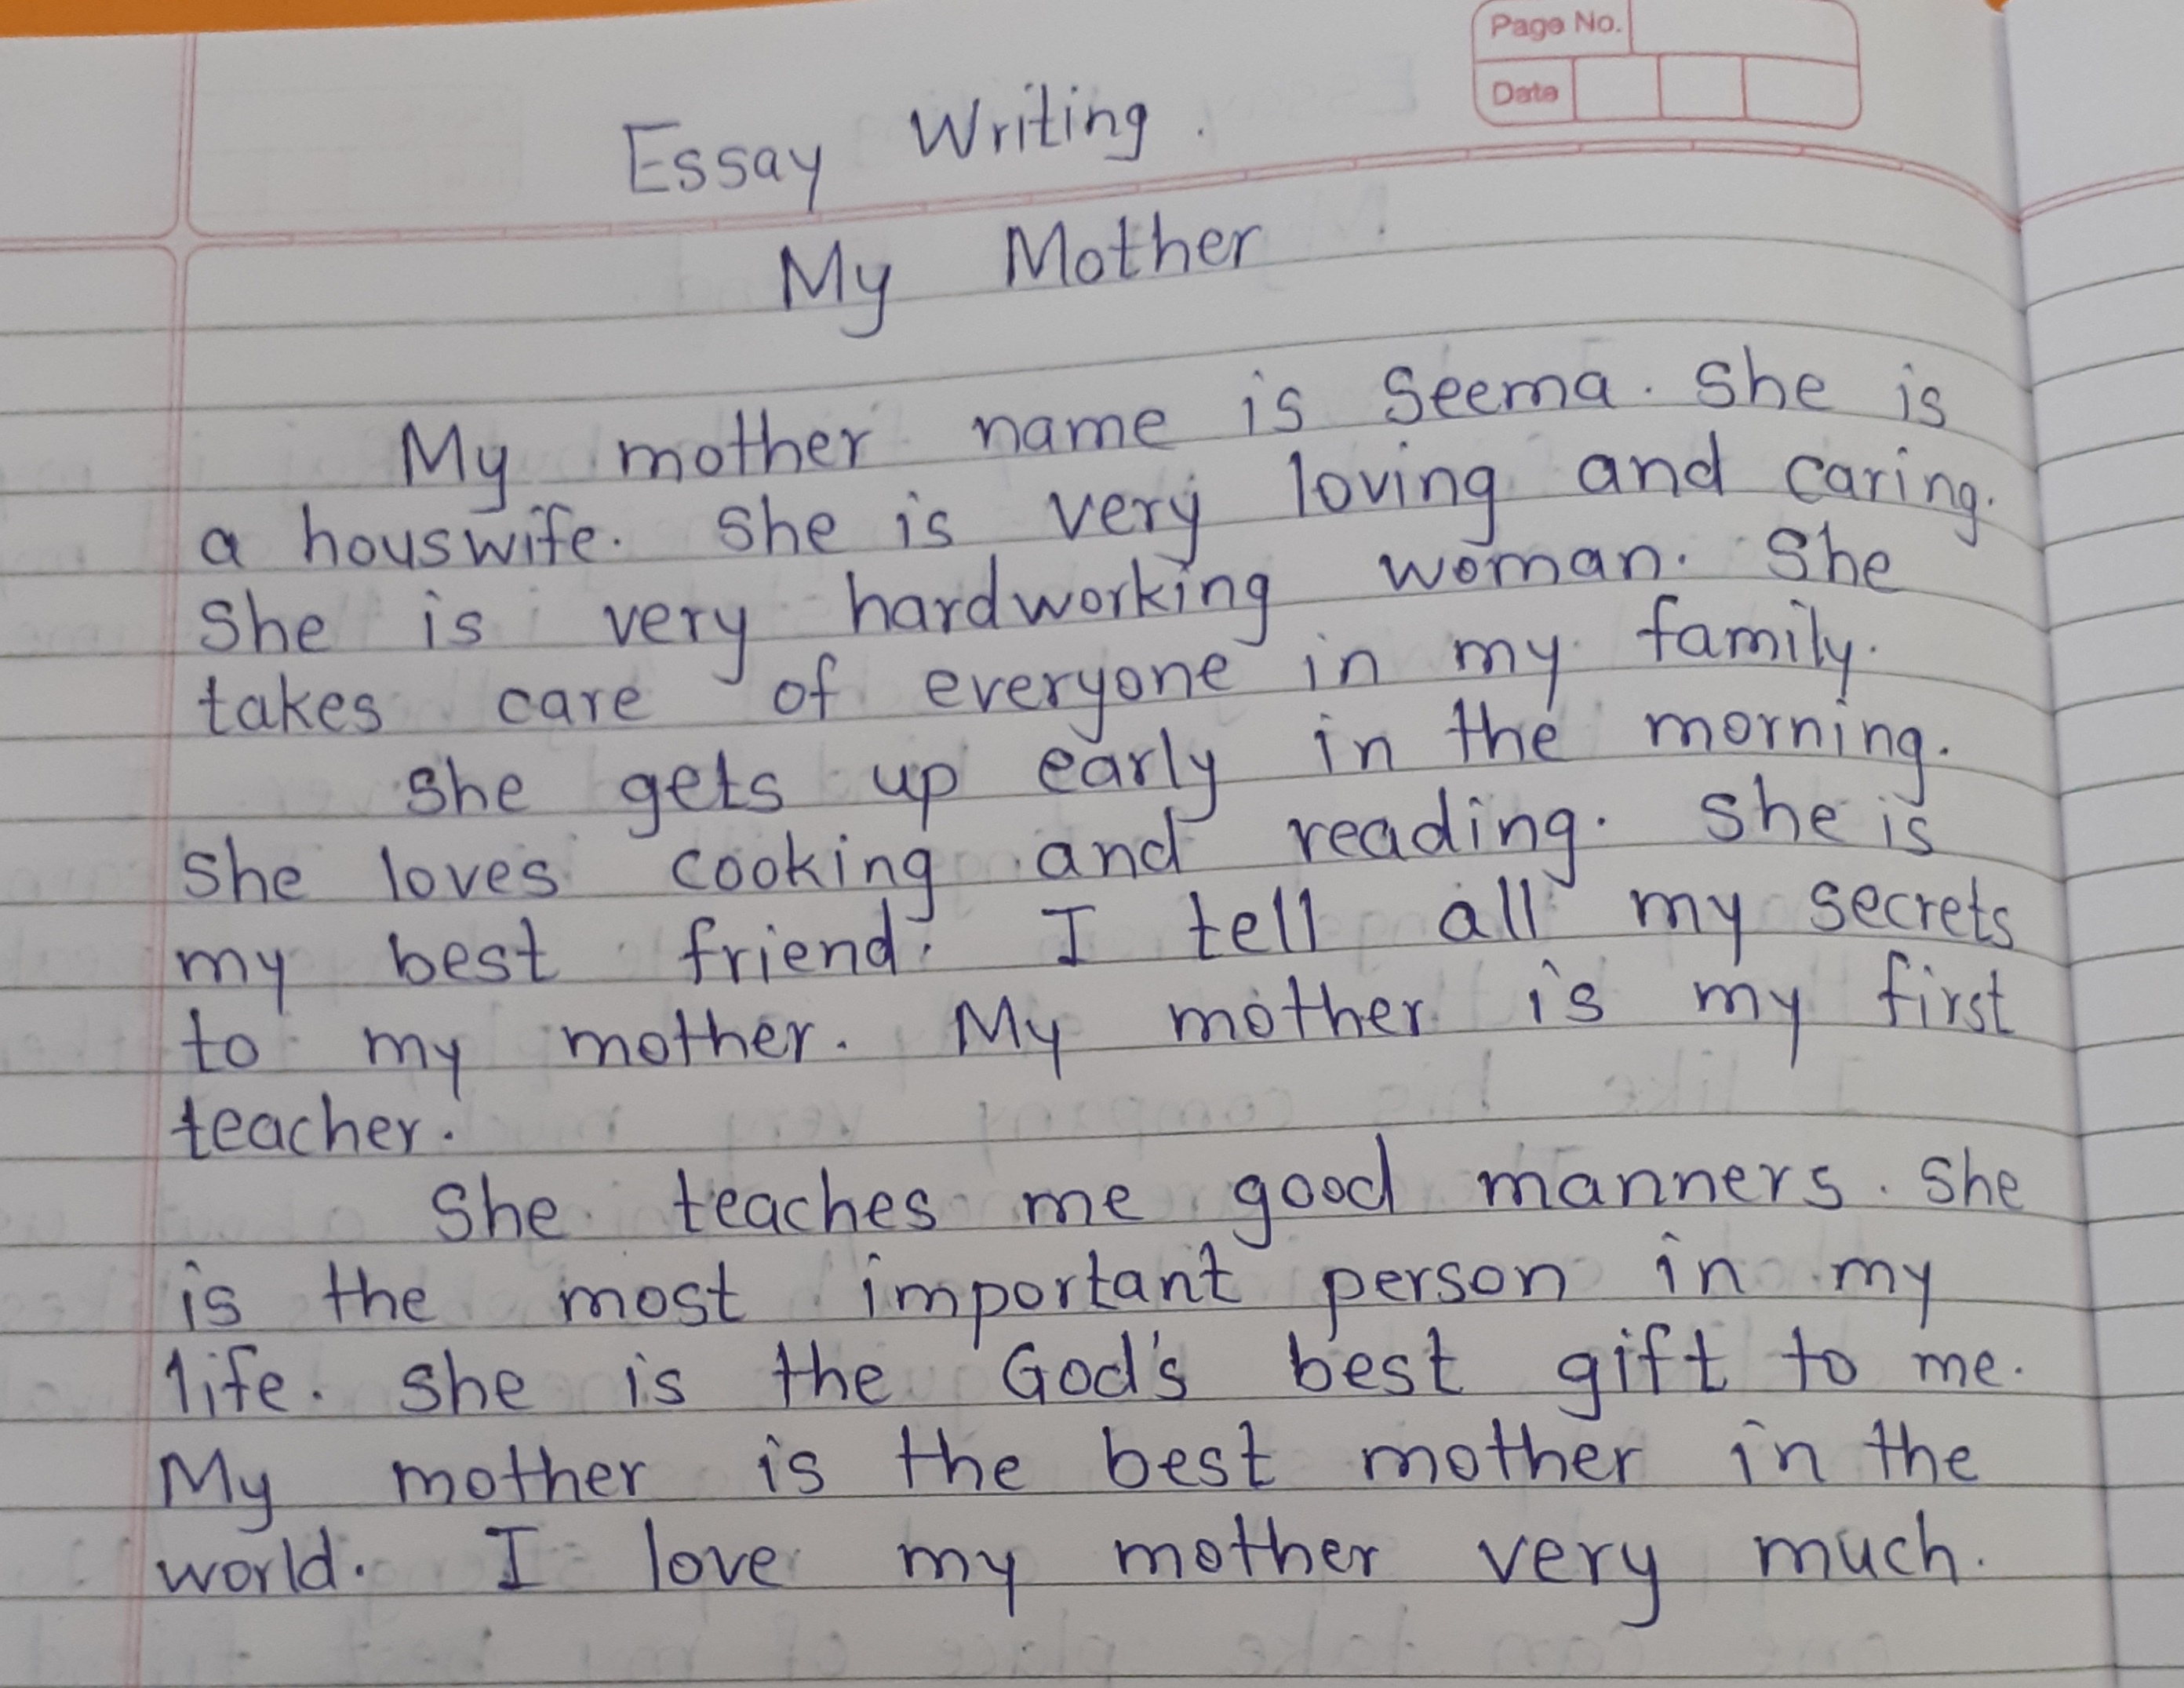 Page No.
Date
Essay Writing.
My Mother
My mother name is Seema. She is
a houswife. She is very loving and caring.
She is very hardworking woman. She
takes care of everyone in my family.
She gets up early in the morning.
She loves cooking and reading. She is
my best friend. I tell all my secrets
to my mother. My mother is my first
teacher.
She teaches me good manners. She
is the most important person in my
life. She is the God's best gift to me.
My mother is the best mother in the
world. I love my mother very much.